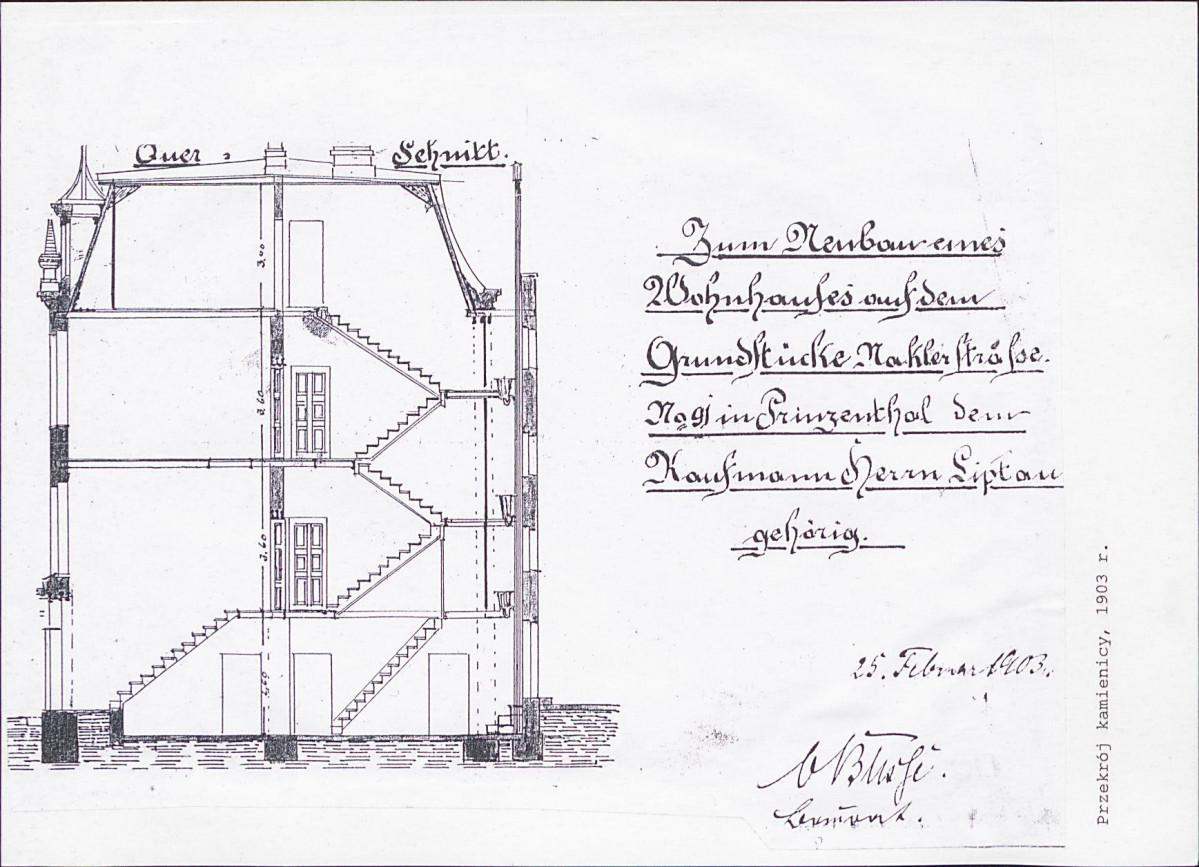 Quer = Schnitt.
3,00
3,60
3,60
Zum Neubau eines
Wohnhauses auf dem
Grundstücke Naklerstraße.
No 91 in Prinzenthal dem
Kaufmann Herrn Liptau
gehörig.
25. Februar 1903.
Przekrój kamienicy, 1903 r.